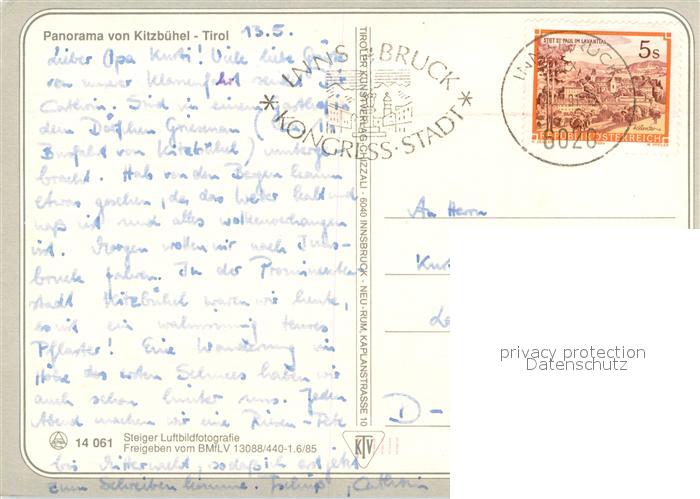 Panorama von Kitzbühel - Tirol
13.5.
Lieber Opa Kurti! Viele liebe Grüße
von unserer Klassenfahrt sendet Dir
Cathrin. Sind in einem Gasthof
dem Dörfchen
von Kitzbühel) unterge-
bracht. Hab von den Bergen kaum
etwas gesehen, da das Wetter kalt und
naß ist und alles wolkenverhangen
ist. Morgen wollen wir nach Inns-
bruck fahren. In der Prominenten-
stadt Kitzbühel waren wir heute,
es ist ein wahnsinnig teures
Pflaster! Eine Wanderung in
Höhe des ersten Schnees haben wir
auch schon hinter uns. Jeden
Abend machen wir eine Riesen-Fete
bis Mitternacht, sodaß ich erst jetzt
zum Schreiben komme. Tschüß, Cathrin
14 061
Steiger Luftbildfotografie
Freigeben vom BMfLV 13088/440-1.6/85
TIROLER KUNSTVERLAG CHIZZALI · 6040 INNSBRUCK - NEU-RUM, KAPLANSTRASSE 10
KTV
INNSBRUCK
* KONGRESS·STADT *
STIFT ST. PAUL IM LAVANTTAL
5 S
REPUBLIK ÖSTERREICH
6020
An Herrn
Kurt
D -
privacy protection
Datenschutz